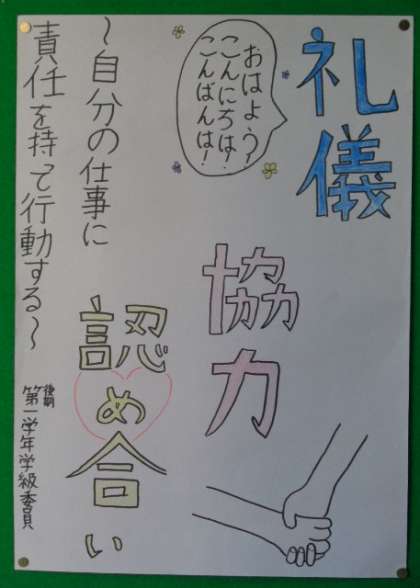 礼儀
おはよう!
こんにちは!
こんばんは!
協力
認め合い
～自分の仕事に
責任を持って行動する～
後期
第一学年学級委員